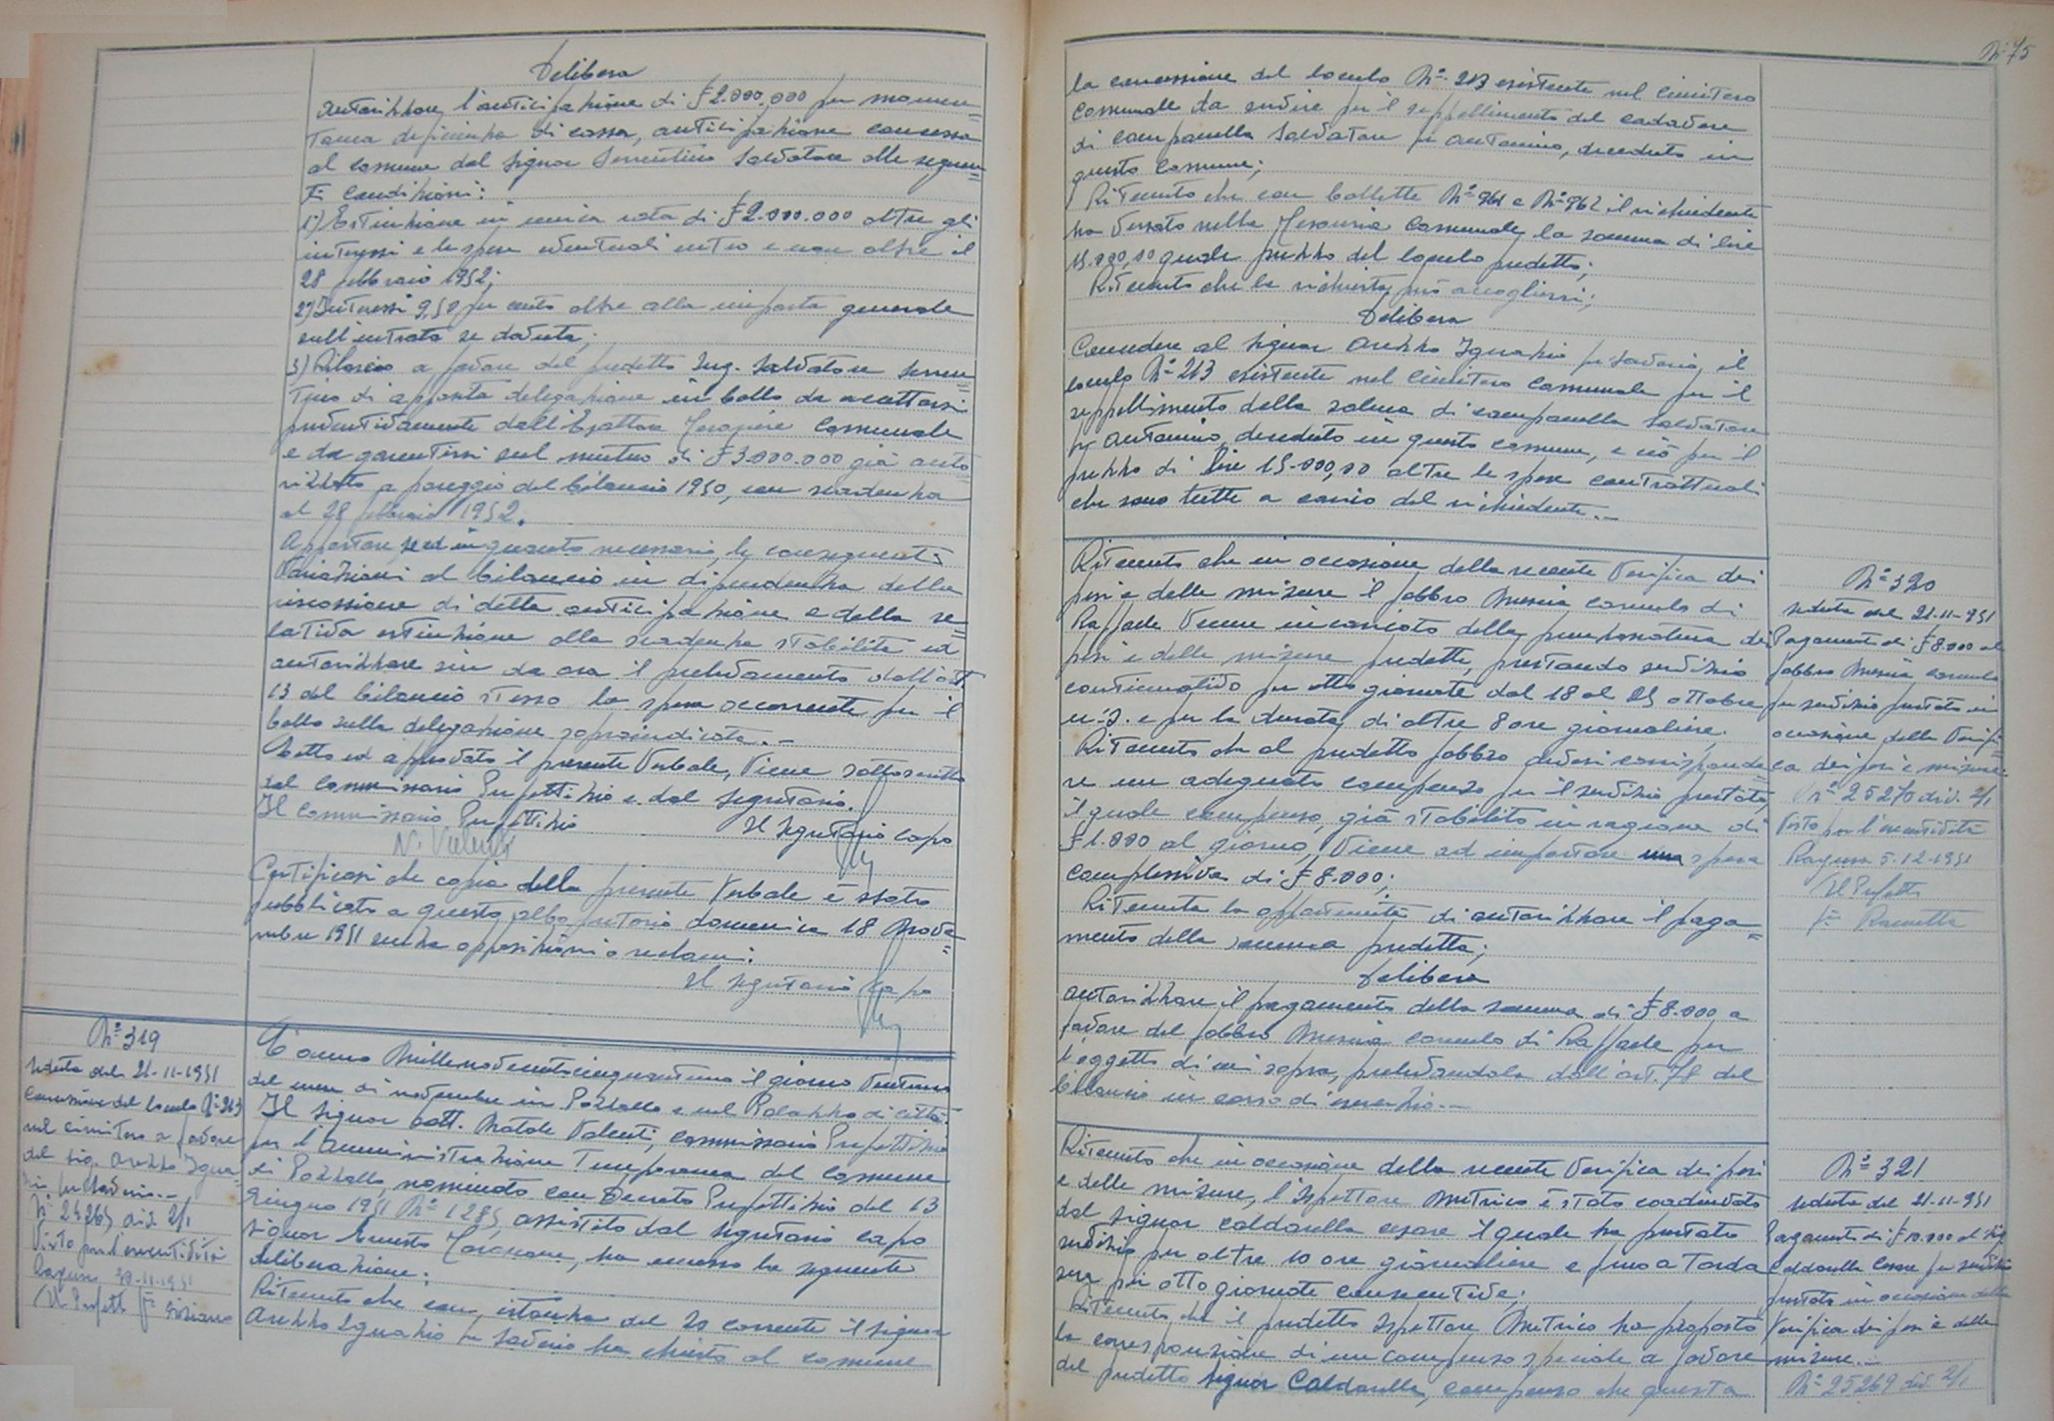 Delibera
autorizzare l'anticipazione di £ 2.000.000 per momen=
tanea deficienza di cassa, anticipazione concessa
al comune dal signor Sorrentino Salvatore alle seguen=
ti condizioni:
1°) Estinzione in unica rata di £ 2.000.000 oltre gli
interessi e le spese eventuali entro e non oltre il
28 febbraio 1952;
2) Interessi 9,50 per cento oltre alla imposta generale
sull'entrata se dovuta;
3) Rilascio a favore del predetto Sig. Salvatore Sorren=
tino di apposita delegazione in bollo da accettarsi
preventivamente dall'Esattore Tesoriere Comunale
e da garentirsi sul mutuo di £ 3.000.000 già auto
rizzato a pareggio del bilancio 1950, con scadenza
al 28 febbraio 1952.
Apportare se ed in quanto necessario, le conseguenti
variazioni al bilancio in dipendenza della
riscossione di detta anticipazione e della re=
lativa estinzione alla scadenza stabilita ed
autorizzare sin da ora il prelevamento dall'art.
13 del bilancio stesso la spesa occorrente per il
bollo sulla delegazione sopraindicata.-
Letto ed approvato il presente Verbale, viene sottoscritto
dal Commissario Prefettizio e dal Segretario.
Il Commissario Prefettizio Il Segretario capo
N. Valenti
Certificasi che copia della presente Verbale è stata
pubblicata a questo albo pretorio domenica 18 Nove=
mbre 1951 senza opposizioni o reclami.
Il Segretario Capo
N° 319
seduta del 21-11-1951
Concessione del loculo N° 263
nel cimitero a favore
del sig. Arezzo Igna=
zio fu Saverio.-
N° 24265 div. 2/1
Visto per l'esecutività
Ragusa, 30-11-1951
Il Prefetto f°
L'anno Millenovecentocinquantuno il giorno Ventuno
del mese di novembre in Pozzallo e nel Palazzo di città.
Il Signor Dott. Natale Valenti, Commissario Prefettizio
per l'Amministrazione Temporanea del Comune
di Pozzallo, nominato con Decreto Prefettizio del 13
Giugno 1951 N° 1285, assistito dal segretario capo
signor Ernesto, ha emesso la seguente
deliberazione:
Ritenuto che con istanza del 20 corrente il signor
Arezzo Ignazio fu Saverio ha chiesto al comune
N° 75
la concessione del loculo N° 213 esistente nel Cimitero
Comunale da servire per il seppellimento del cadavere
di Campanella Salvatore fu Antonino, deceduto in
questo Comune;
Ritenuto che con bollette N° 961 e N° 962 il richiedente
ha versato nella Tesoreria Comunale la somma di lire
15.000,00 quale prezzo del loculo predetto;
Ritenuto che la richiesta può accogliersi;
Delibera
Concedere al signor Arezzo Ignazio fu Saverio, il
loculo N° 213 esistente nel Cimitero Comunale per il
seppellimento della salma di Campanella Salvatore
fu Antonino, deceduto in questo comune, e ciò per il
prezzo di lire 15.000,00 oltre le spese contrattuali
che sono tutte a carico del richiedente.-
Ritenuto che in occasione della recente Verifica dei
pesi e delle misure il fabbro Messina Carmelo di
Raffaele venne incaricato della punzonatura dei
pesi e delle misure predette, prestando servizio
continuativo per otto giornate dal 18 al 25 ottobre
u.s. e per la durata di oltre 8 ore giornaliere.
Ritenuto che al predetto fabbro devesi corrisponde=
re un adeguato compenso per il servizio prestato,
il quale compenso, già stabilito in ragione di
£ 1.000 al giorno, viene ad importare una spesa
complessiva di £ 8.000;
Ritenuta la opportunità di autorizzare il paga=
mento della somma predetta;
Delibera
autorizzare il pagamento della somma di £ 8.000 a
favore del fabbro Messina Carmelo di Raffaele per
l'oggetto di cui sopra, prelevandola dall'art. 78 del
bilancio in corso di esercizio.-
N° 320
seduta del 21-11-951
Pagamento di £ 8.000 al
fabbro Messina Carmelo
per servizio prestato in
occasione della Verifi=
ca dei pesi e misure.
N° 25270 div. 2/1
Visto per l'esecutività
Ragusa 5-12-1951
Il Prefetto
f°
Ritenuto che in occasione della recente Verifica dei pesi
e delle misure, l'Ispettore Metrico è stato coadiuvato
dal signor Caldarella Cesare il quale ha prestato
servizio per oltre 10 ore giornaliere e fino a tarda
sera per otto giornate consecutive;
Ritenuto che il predetto Ispettore Metrico ha proposto
la corresponsione di un compenso speciale a favore
del predetto signor Caldarella, compenso che questa
N° 321
seduta del 21-11-951
Pagamento di £ 10.000 al sig.
Caldarella Cesare per servizio
prestato in occasione della
Verifica dei pesi e delle
misure.-
N° 25269 div. 2/1